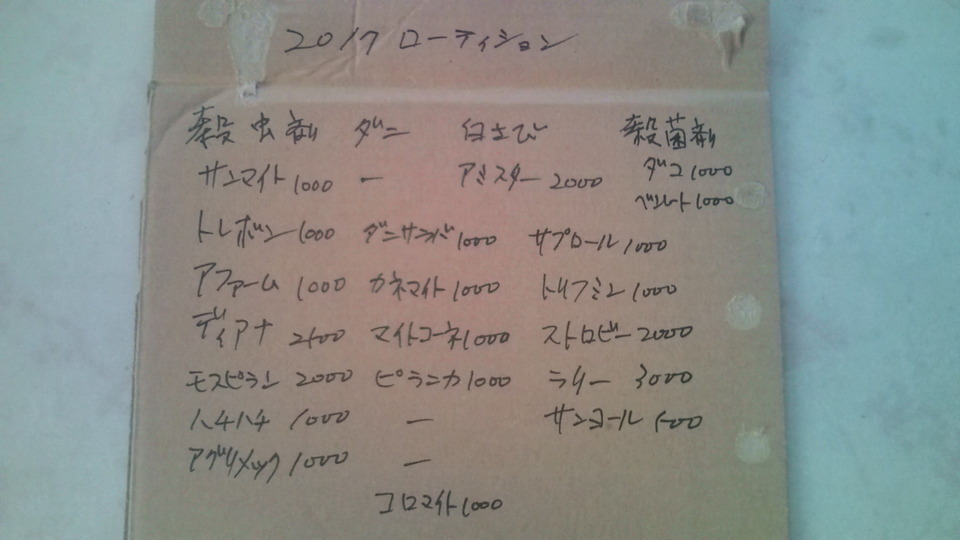 2017 ローティション
殺虫剤 ダニ 白さび 殺菌剤
サンマイト1000 ー アミスター2000 ダコ1000
ベンレート1000
トレボン1000 ダニサラバ1000 サプロール1000
アファーム 1000 カネマイト1000 トリフミン1000
ディアナ 2500 マイトコーネ1000 ストロビー2000
モスピラン 2000 ピラニカ1000 ラリー 3000
ハチハチ 1000 ー サンヨール500
アグリメック1000 ー
コロマイト1000